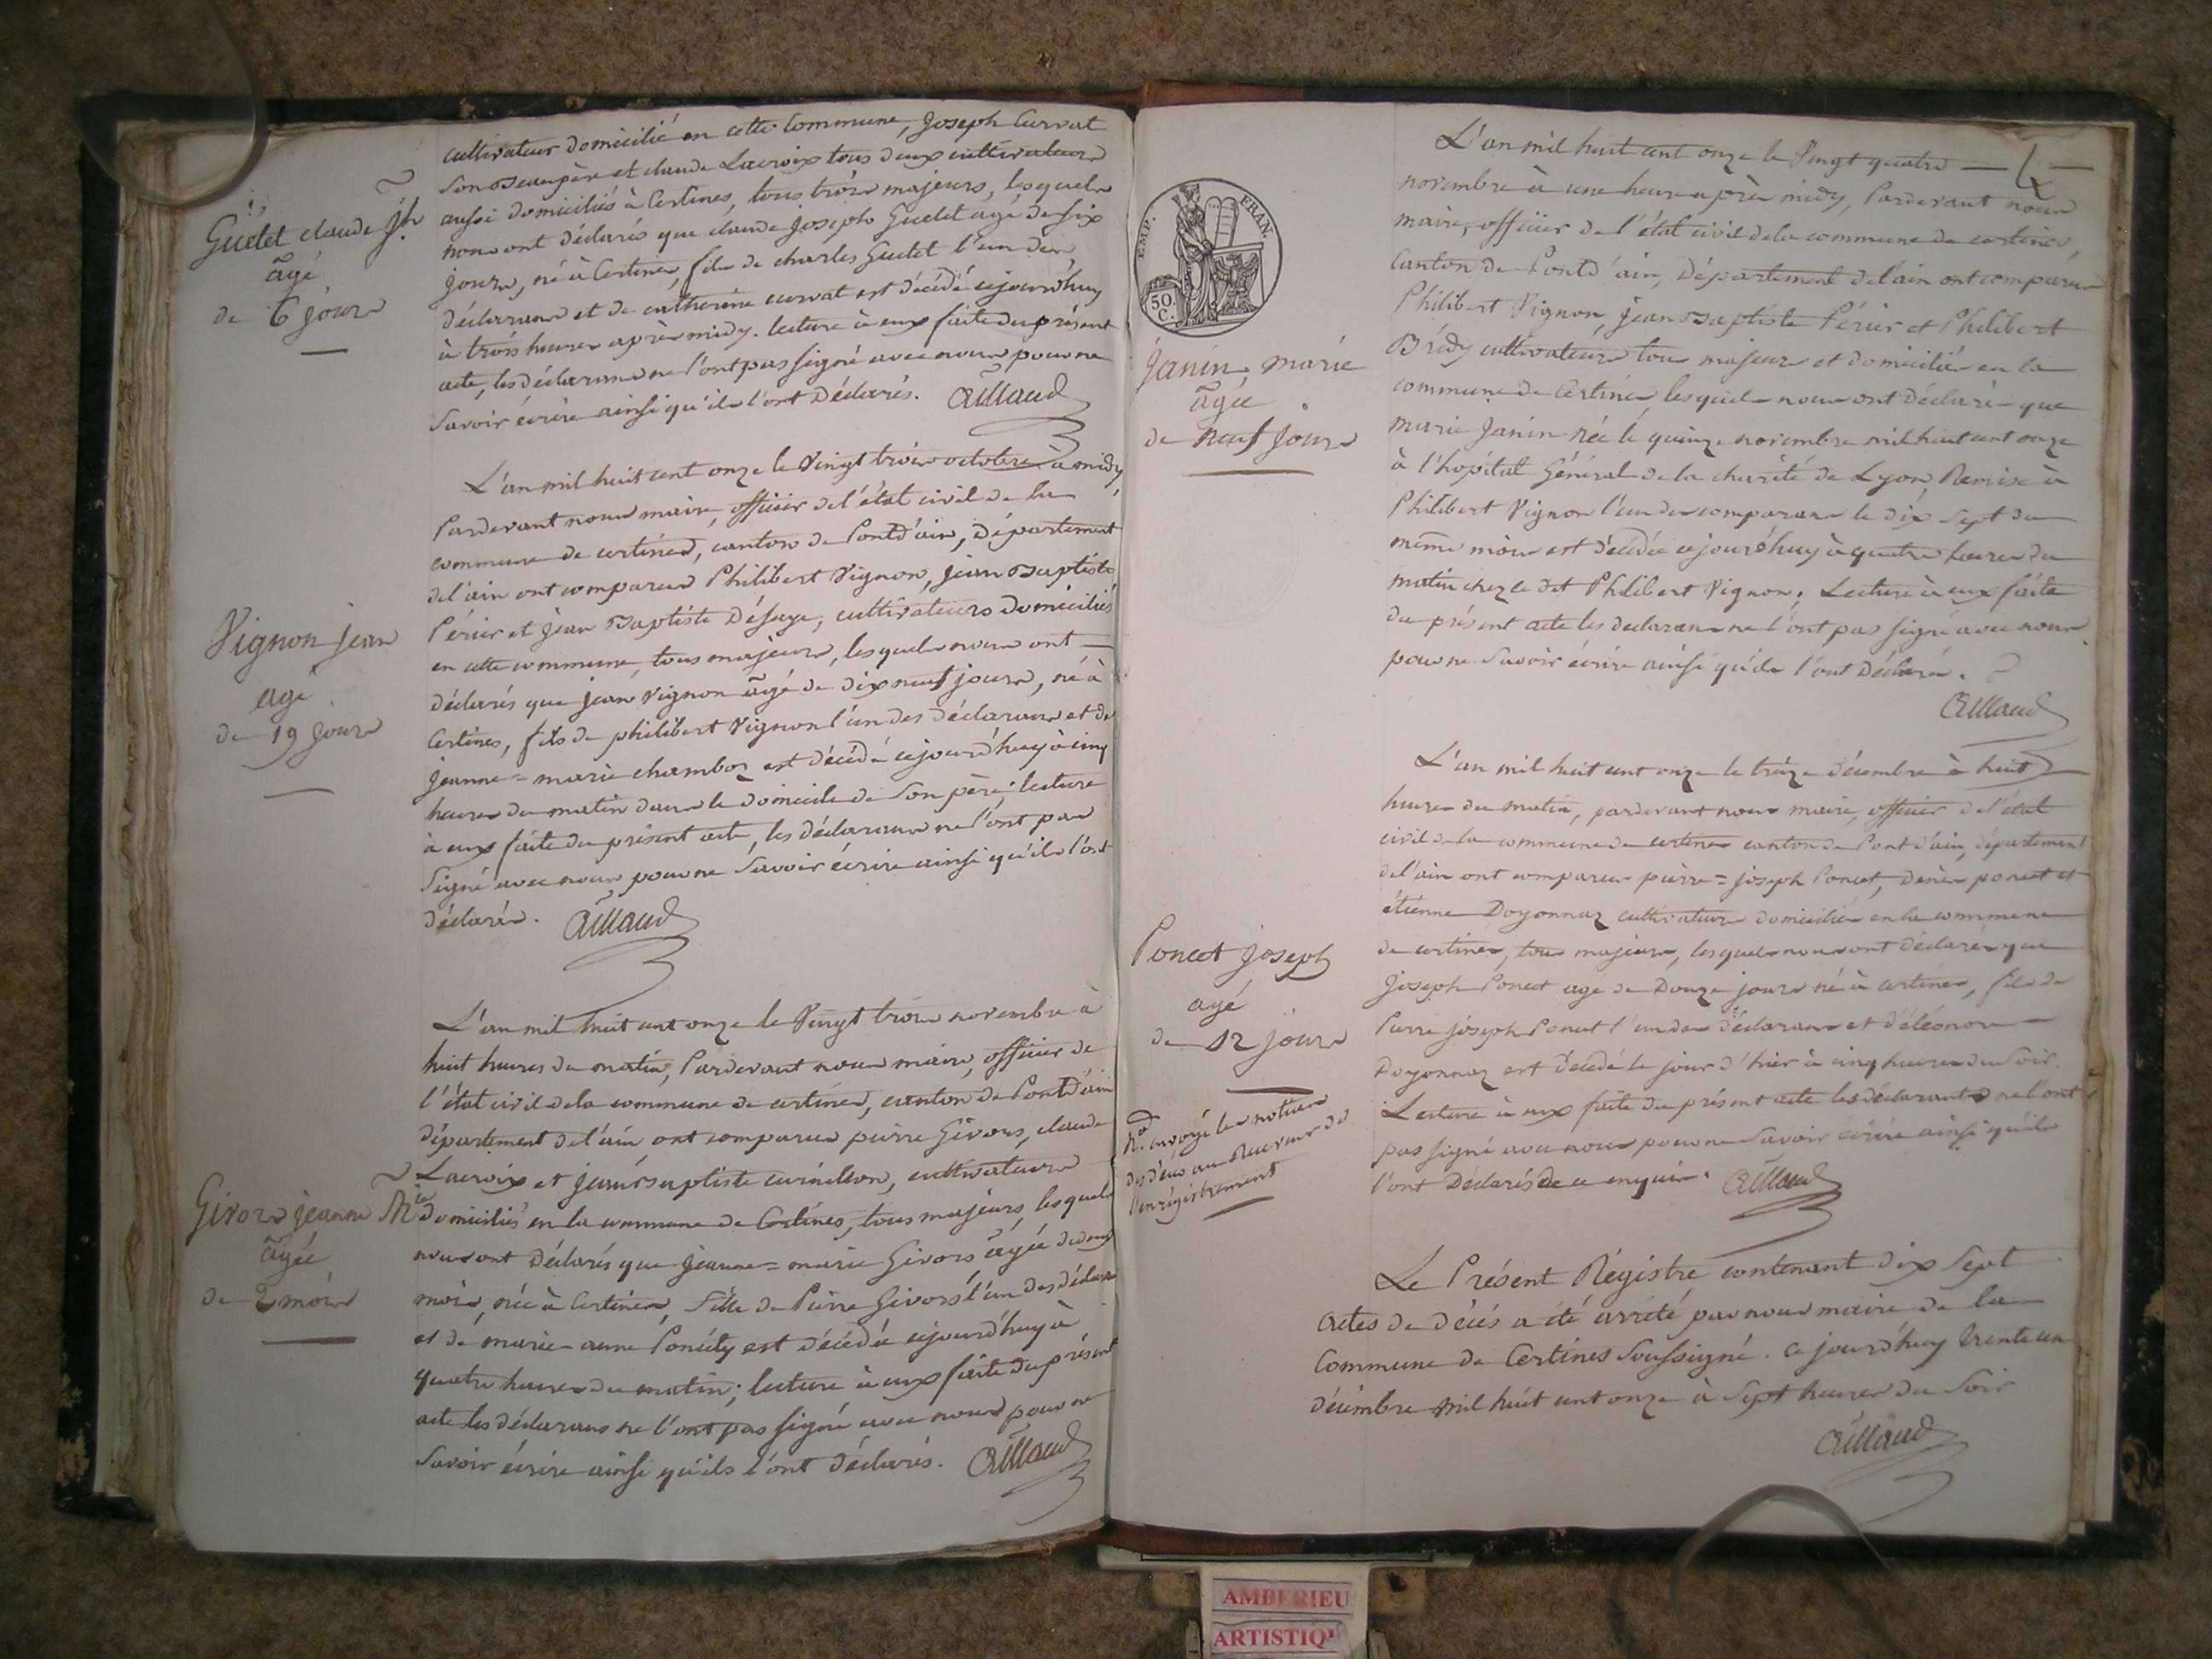 Guetet claude Jh
âgé
de 6 jours
cultivateur domicilié en cette Commune, Joseph Curvat
son Beaupère et claude Lacroix tous deux cultivateurs
aussi domiciliés à Certines, tous trois majeurs, lesquels
nous ont déclarés que claude Joseph Guetet agé de six
jours, né à Certines, fils de charles Guetet l'un des
déclarans et de catherine curvat est décédé cejourd'huy
à trois heures après midy. lecture à eux faite du présent
acte, les déclarans ne l'ont pas signé avec nous pour ne
savoir écrire ainsi qu'ils l'ont Déclarés. Aillaud
Vignon jean
agé
de 19 jours
L'an mil huit cent onze le Vingt trois octobre à midy,
Pardevant nous maire, officier de l'état civil de la
commune de certines, canton de Pontd'ain, Département
de l'ain ont comparus Philibert Vignon, jean Baptiste
Périer et jean Baptiste Desaye, cultivateurs domiciliés
en cette commune, tous majeurs, lesquels nous ont
déclarés que jean Vignon âgé de dix neuf jours, né à
Certines, fils de philibert Vignon l'un des déclarans et de
jeanne=marie chamboz est décédé cejourd'huy à cinq
heures du matin dans le domicile de son père; lecture
à eux faite du présent acte, les déclarans ne l'ont pas
signé avec nous pour ne savoir écrire ainsi qu'ils l'ont
déclarés. Aillaud
Givors jeanne Mie
âgée
de 2 mois
L'an mil huit cent onze le Vingt trois novembre à
huit heures du matin, Pardevant nous maire, officier de
l'état civil de la commune de certines, canton de Pontd'ain
département de l'ain, ont comparus pierre Givors, claude
Lacroix et jean baptiste curinillon, cultivateurs
domiciliés en la commune de Certines, tous majeurs, lesquels
nous ont déclarés que jeanne=marie Givors âgée de deux
mois, née à Certines, fille de Pierre Givors l'un des déclarans
et de marie-anne Poncety est décédée cejourd'huy à
quatre heures du matin; lecture à eux faite du présent
acte les déclarans ne l'ont pas signé avec nous pour ne
savoir écrire ainsi qu'ils l'ont déclarés. Aillaud
4
EMP. FRAN.
50. C.
Janin, marie
âgée
de neuf jours
L'an mil huit cent onze le Vingt quatre
novembre à une heure après midy, Pardevant nous
maire, officier de l'état civil de la commune de certines,
Canton de Pontd'ain, Département de l'ain ont comparus
Philibert Vignon, jean Baptiste Périer et Philibert
Brédy cultivateurs tous majeurs et domiciliés en la
commune de Certines, lesquels nous ont déclarés que
marie Janin née le quinze novembre mil huit cent onze
à l'hopital Général de la charité de Lyon, Remise à
Philibert Vignon l'un des comparans le dix sept du
même mois est décédée cejourd'huy à quatre heures du
matin chez le dit Philibert Vignon; Lecture à eux faite
du présent acte les declarans ne l'ont pas signé avec nous
pour ne savoir écrire ainsi qu'ils l'ont déclaré.
Aillaud
Poncet joseph
agé
de 12 jours
L'an mil huit cent onze le treize décembre à huit
heures du matin, pardevant nous maire, officier de l'état
civil de la commune de certines canton de Pont d'ain, département
de l'ain ont comparus pierre=joseph Poncet, denis poncet et
étienne Doyonnaz cultivateurs domiciliés en la commune
de certines, tous majeurs, lesquels nous ont déclarés que
Joseph Poncet age de Douze jours né à certines, fils de
Pierre joseph Poncet l'un des déclarans et d'éléonore
Doyonnaz est décédé le jour d'hier à cinq heures du soir.
Lecture à eux faite du présent acte les déclarants ne l'ont
pas signé avec nous pour ne savoir écrire ainsi qu'ils
l'ont Déclarés de ce enquis. Aillaud
envoyé les notices
des décès au Receveur de
l'enrégistrement
Le Présent Régistre contenant dix Sept
actes de décés a été arrété par nous maire de la
Commune de Certines Soussigné. ce jourd'huy trente un
décembre mil huit cent onze à Sept heures du Soir
Aillaud
AMBERIEU
ARTISTIQU